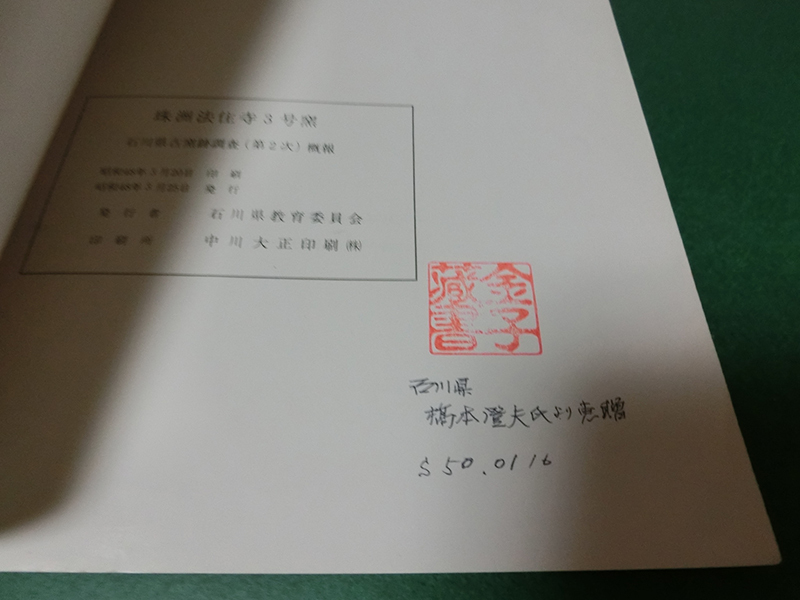 珠洲法住寺3号窯
石川県古窯跡調査(第2次)概報
昭和48年3月20日 印刷
昭和48年3月25日 発行
発行者 石川県教育委員会
印刷所 中川大正印刷㈱
金子
蔵書
石川県
橋本澄夫氏より恵贈
S50.01 16